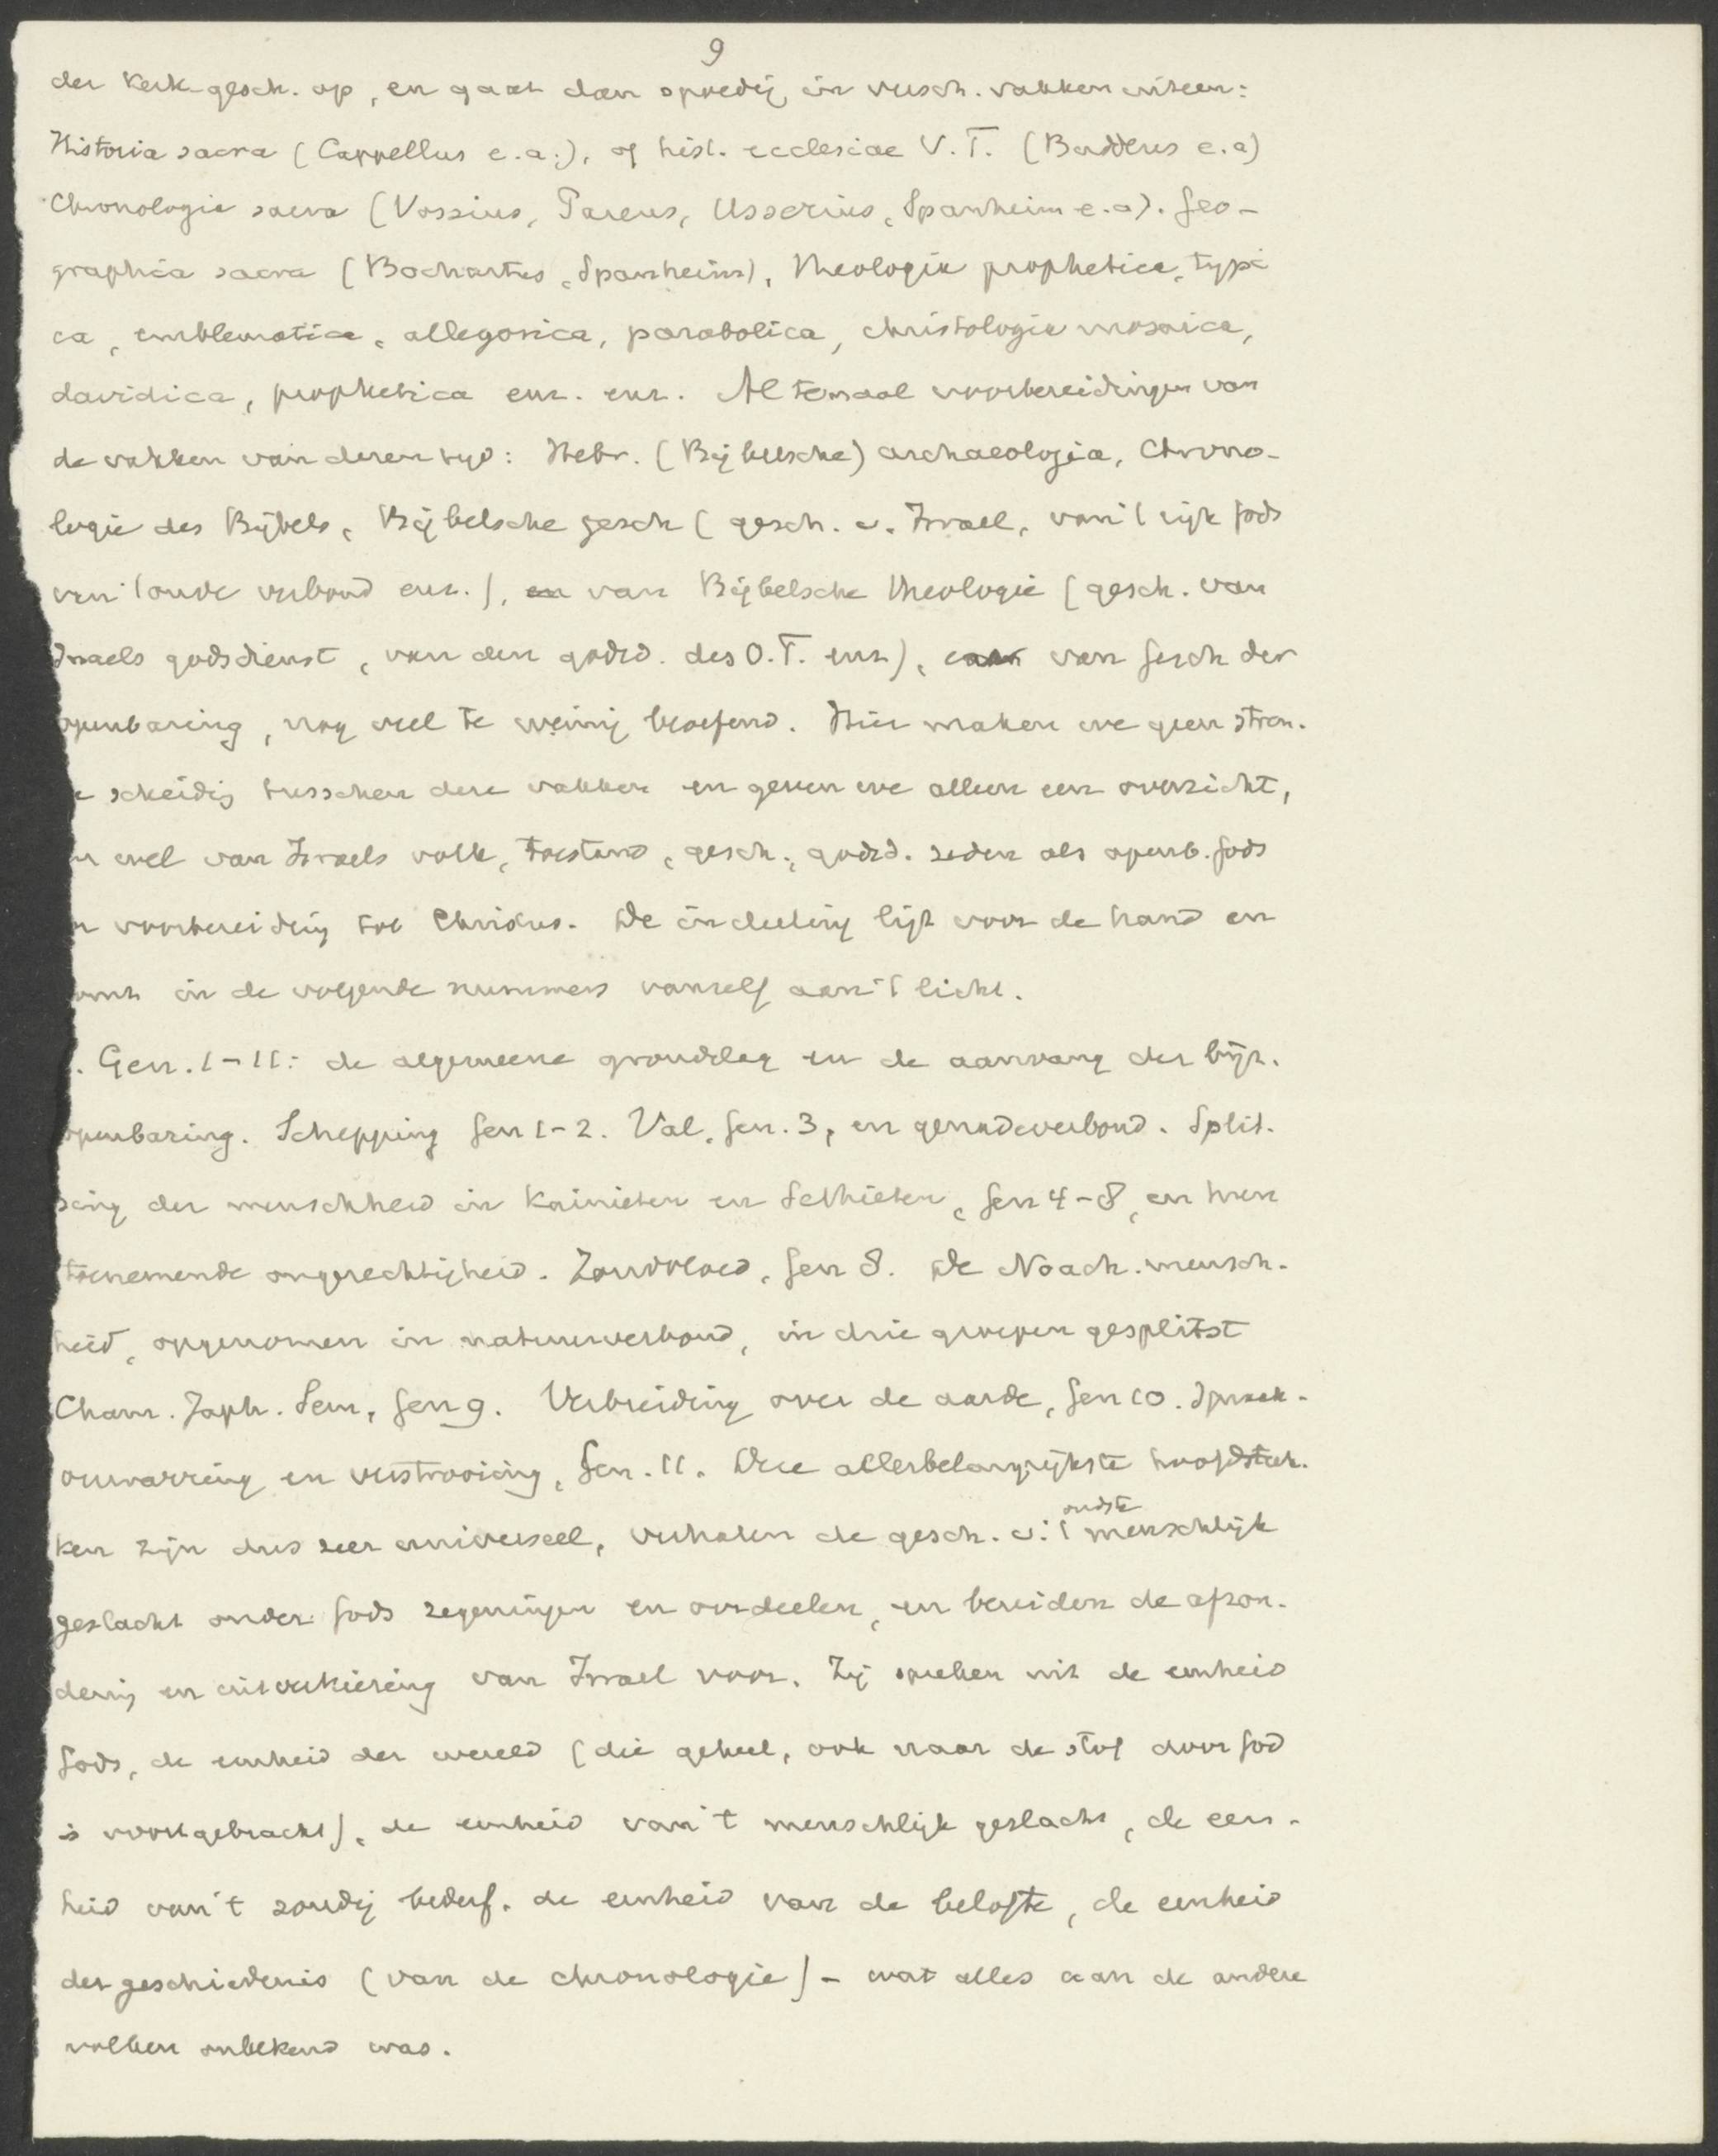 9
der Kerk-gesch. op, en gaat dan spoedig in versch. vakken uiteen:
Historia sacra (Cappellus e.a.), of hist. ecclesiae V.T. (Buddeus e.a)
Chronologia sacra (Vossius, Pareus, Usserius, Spanheim e.a). Geo-
graphia sacra (Bochartus, Spanheim), Theologia prophetica, typi
ca, emblematica, allegorica, parabolica, christologia mosaica,
davidica, prophetica enz. enz. Altemaal voorbereidingen van
de vakken van dezen tijd: Hebr. (Bijbelsche) archaeologia, Chrono-
logie des Bijbels, Bijbelsche gesch (gesch. v. Israel, van 't rijk Gods
van 't oude verbond enz.), en van Bijbelsche Theologie (gesch. van
Israels godsdienst, van den godsd. des O.T. enz), van Gesch der
openbaring, nog veel te weinig beoefend. Hier maken we geen stren-
e scheiding tusschen deze vakken en geven we alleen een overzicht,
n wel van Israels volk, toestand, gesch., godsd. zeden als openb. Gods
n voorbereiding tot Christus. De indeeling ligt voor de hand en
omt in de volgende nummers vanzelf aan 't licht.
. Gen. 1-11: de algemeene grondslag en de aanvang der bijz.
openbaring. Schepping Gen 1-2. Val, Gen. 3, en genadeverbond. Split-
sing der menschheid in Kainieten en Sethieten, Gen 4-8, en hun
toenemende ongerechtigheid. Zondvloed, Gen 8. De Noach. mensch-
heid, opgenomen in natuurverbond, in drie groepen gesplitst
Cham. Japh. Sem, Gen 9. Verbreiding over de aarde, Gen 10. Spraak-
verwarring en verstrooiing, Gen. 11. Deze allerbelangrijkste hoofdstuk-
ken zijn dus zeer universeel, verhalen de gesch. v. 't oudste menschlijk
geslacht onder Gods zegeningen en oordeelen, en bereiden de afzon-
dering en uitverkiezing van Israel voor. Zij spreken uit de eenheid
Gods, de eenheid der wereld (die geheel, ook naar de stof door God
is voortgebracht), de eenheid van 't menschlijk geslacht, de een-
heid van 't zondig bederf, de eenheid van de belofte, de eenheid
der geschiedenis (van de chronologie) - wat alles aan de andere
volken onbekend was.